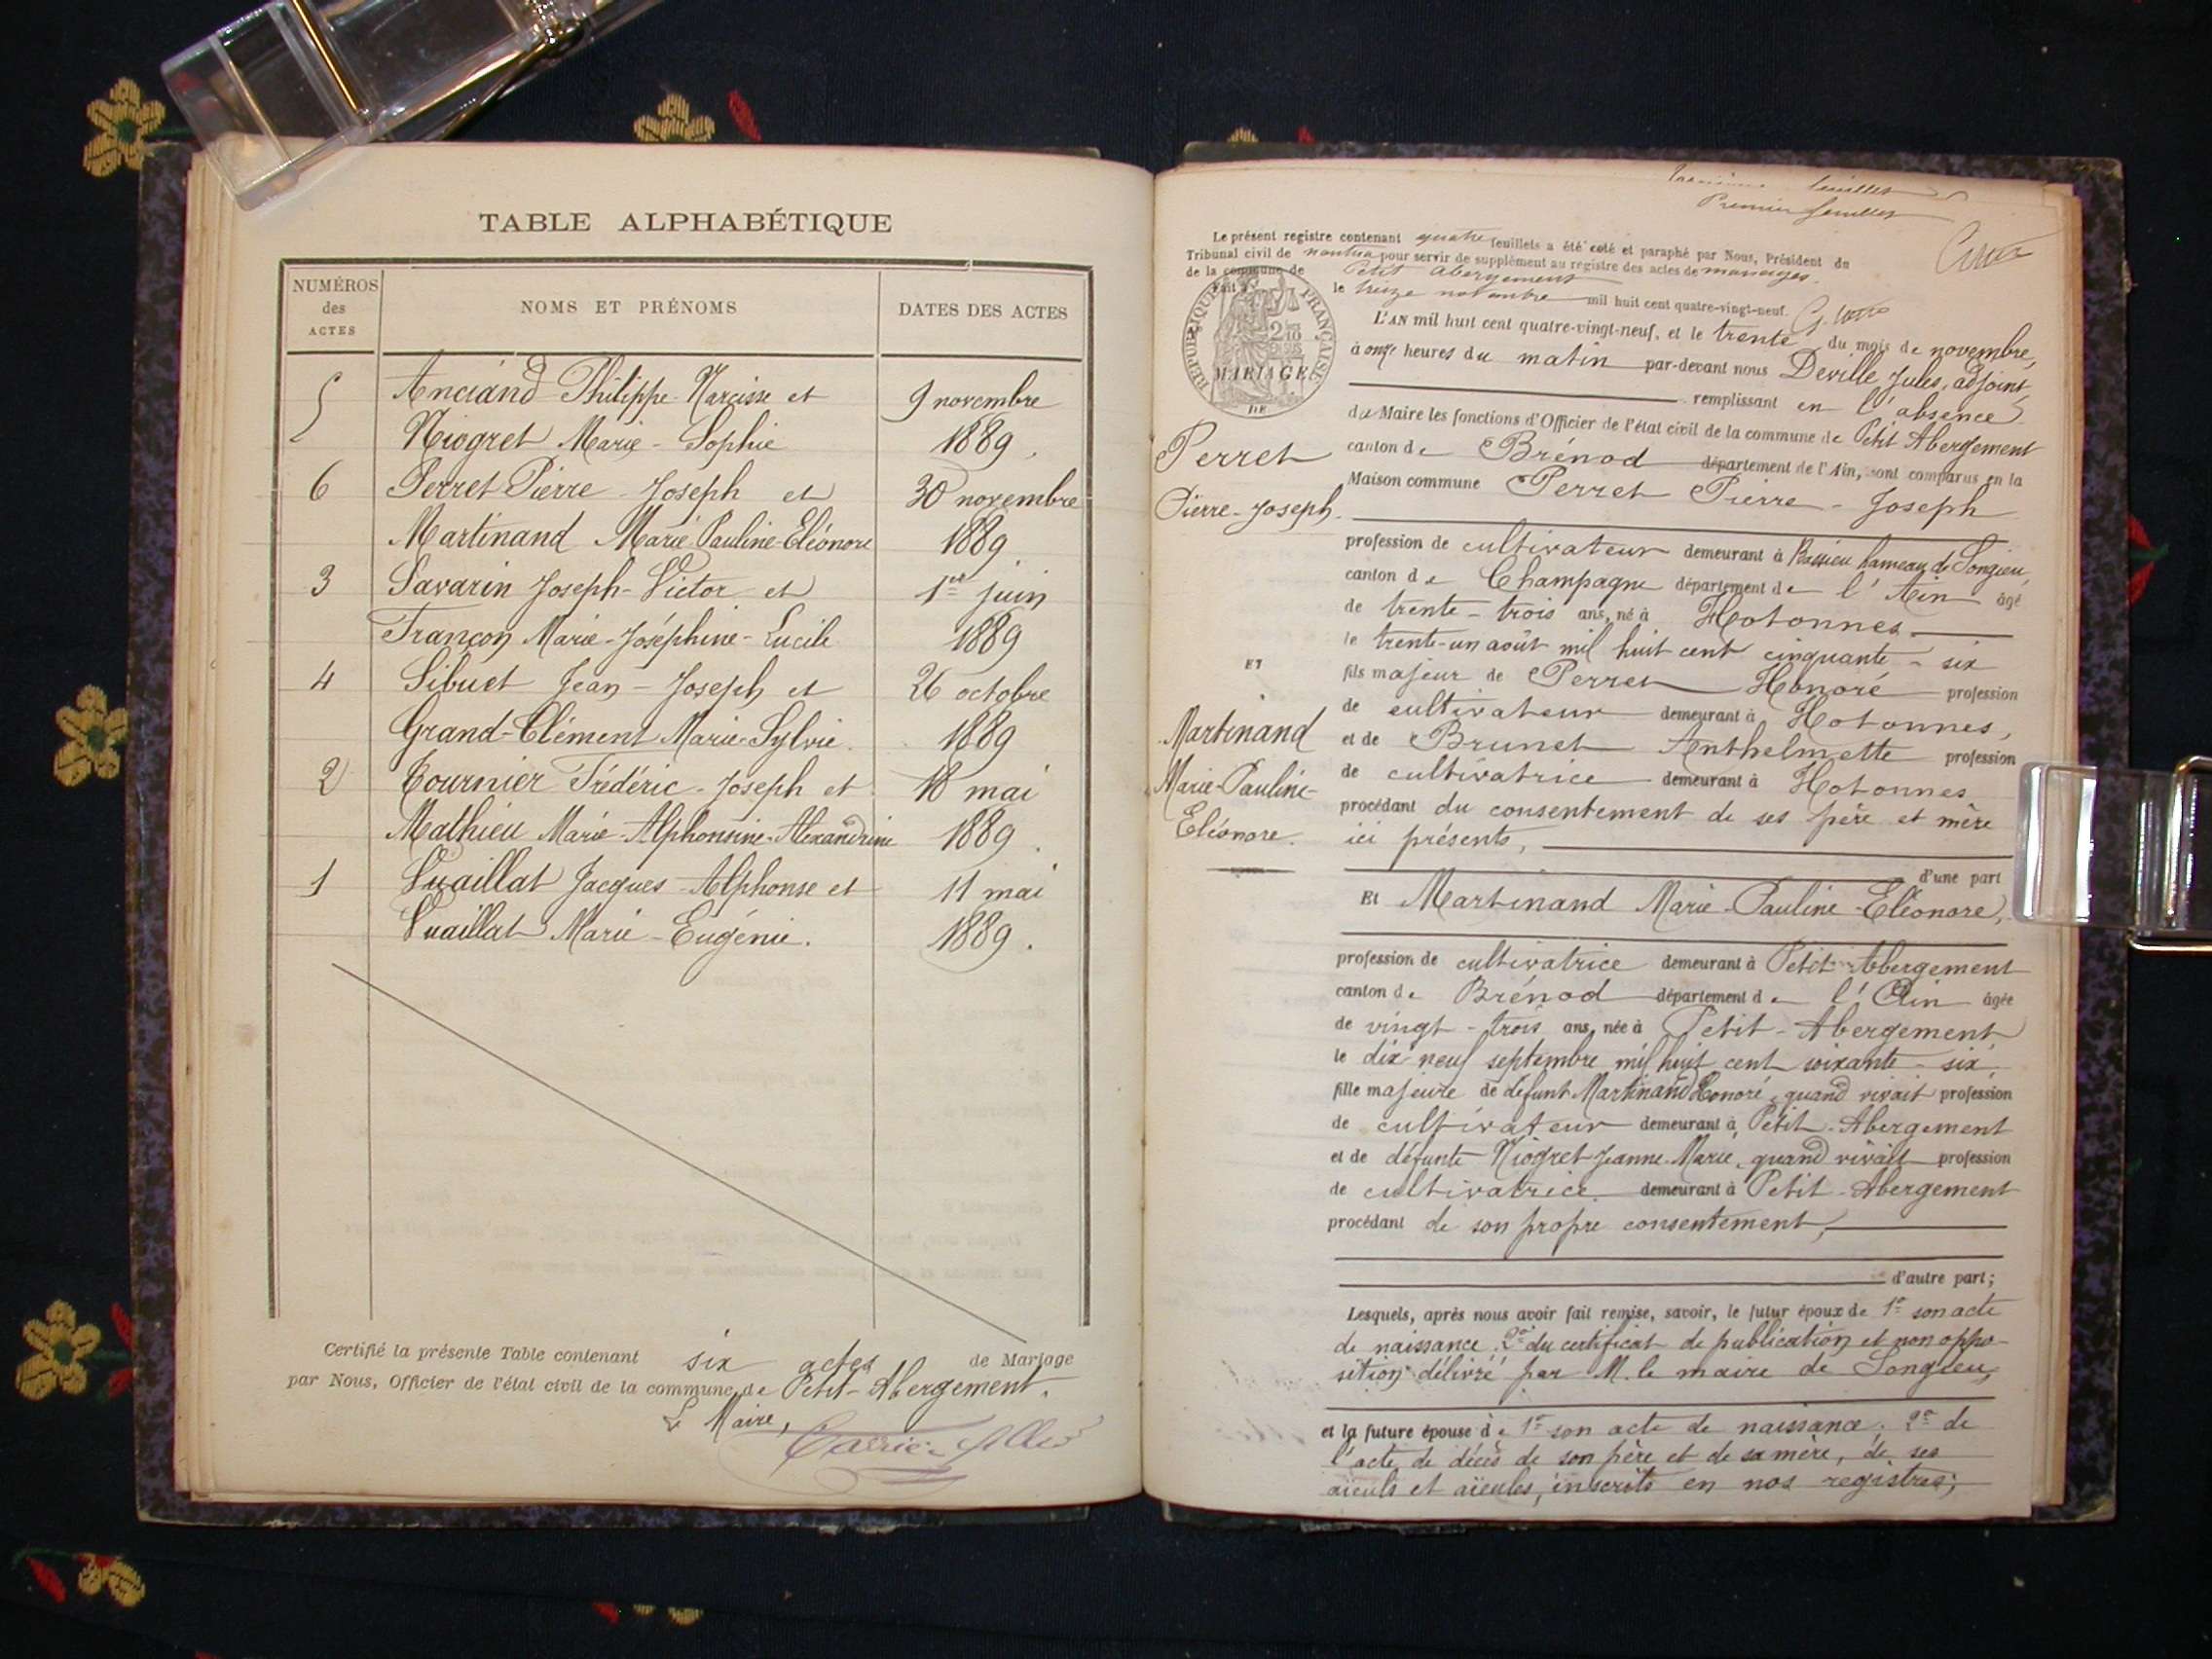 TABLE ALPHABÉTIQUE
NUMÉROS des ACTES
NOMS ET PRÉNOMS
DATES DES ACTES
5 Anciand Philippe-Narcisse et 9 novembre
Niogret Marie-Sophie 1889.
6 Perret Pierre-Joseph et 30 novembre
Martinand Marie-Pauline-Eléonore 1889
3 Savarin Joseph-Victor et 1er juin
Françon Marie-Joséphine-Lucile 1889
4 Sibuet Jean-Joseph et 26 octobre
Grand-Clément Marie-Sylvie. 1889
2 Tournier Frédéric-Joseph et 18 mai
Mathieu Marie-Alphonsine-Alexandrine 1889.
1 Vuaillat Jacques-Alphonse et 11 mai
Vuaillat Marie-Eugénie. 1889.
Certifié la présente Table contenant six actes de Mariage
par Nous, Officier de l'état civil de la commune de Petit-Abergement.
Le Maire,
feuillet
Premier feuillet
Le présent registre contenant quatre feuillets a été coté et paraphé par Nous, Président du
Tribunal civil de nantua pour servir de supplément au registre des actes de mariages.
de la commune de Petit Abergement
Fait à le treize novembre mil huit cent quatre-vingt-neuf.
RÉPUBLIQUE FRANÇAISE
MARIAGE
L'AN mil huit cent quatre-vingt-neuf, et le trente du mois de novembre,
à onze heures du matin par-devant nous Deville Jules, adjoint
remplissant en l'absence
du Maire les fonctions d'Officier de l'état civil de la commune de Petit Abergement
canton de Brénod département de l'Ain, sont comparus en la
Maison commune Perret Pierre-Joseph
Perret
Pierre-Joseph.
profession de cultivateur demeurant à Bassieu hameau de Songieu,
canton de Champagne département de l'Ain âgé
de trente-trois ans, né à Hotonnes
le trente-un août mil huit cent cinquante-six
ET
fils majeur de Perret Honoré profession
de cultivateur demeurant à Hotonnes,
et de Brunet Anthelmette profession
de cultivatrice demeurant à Hotonnes
procédant du consentement de ses père et mère
ici présents,
d'une part
Martinand
Marie-Pauline-
Eléonore.
Et Martinand Marie-Pauline-Eléonore,
profession de cultivatrice demeurant à Petit-Abergement
canton de Brénod département de l'Ain âgée
de vingt-trois ans, née à Petit-Abergement
le dix neuf septembre mil huit cent soixante-six,
fille majeure de défunt Martinand Honoré, quand vivait profession
de cultivateur demeurant à Petit-Abergement
et de défunte Niogret Jeanne-Marie, quand vivait profession
de cultivatrice demeurant à Petit-Abergement
procédant de son propre consentement,
d'autre part;
Lesquels, après nous avoir fait remise, savoir, le futur époux de 1° son acte
de naissance. 2° du certificat de publication et non oppo-
sition délivré par M. le maire de Songieu,
et la future épouse de 1° son acte de naissance. 2° de
l'acte de décès de son père et de sa mère, de ses
aïeuls et aïeules, inscrits en nos registres;